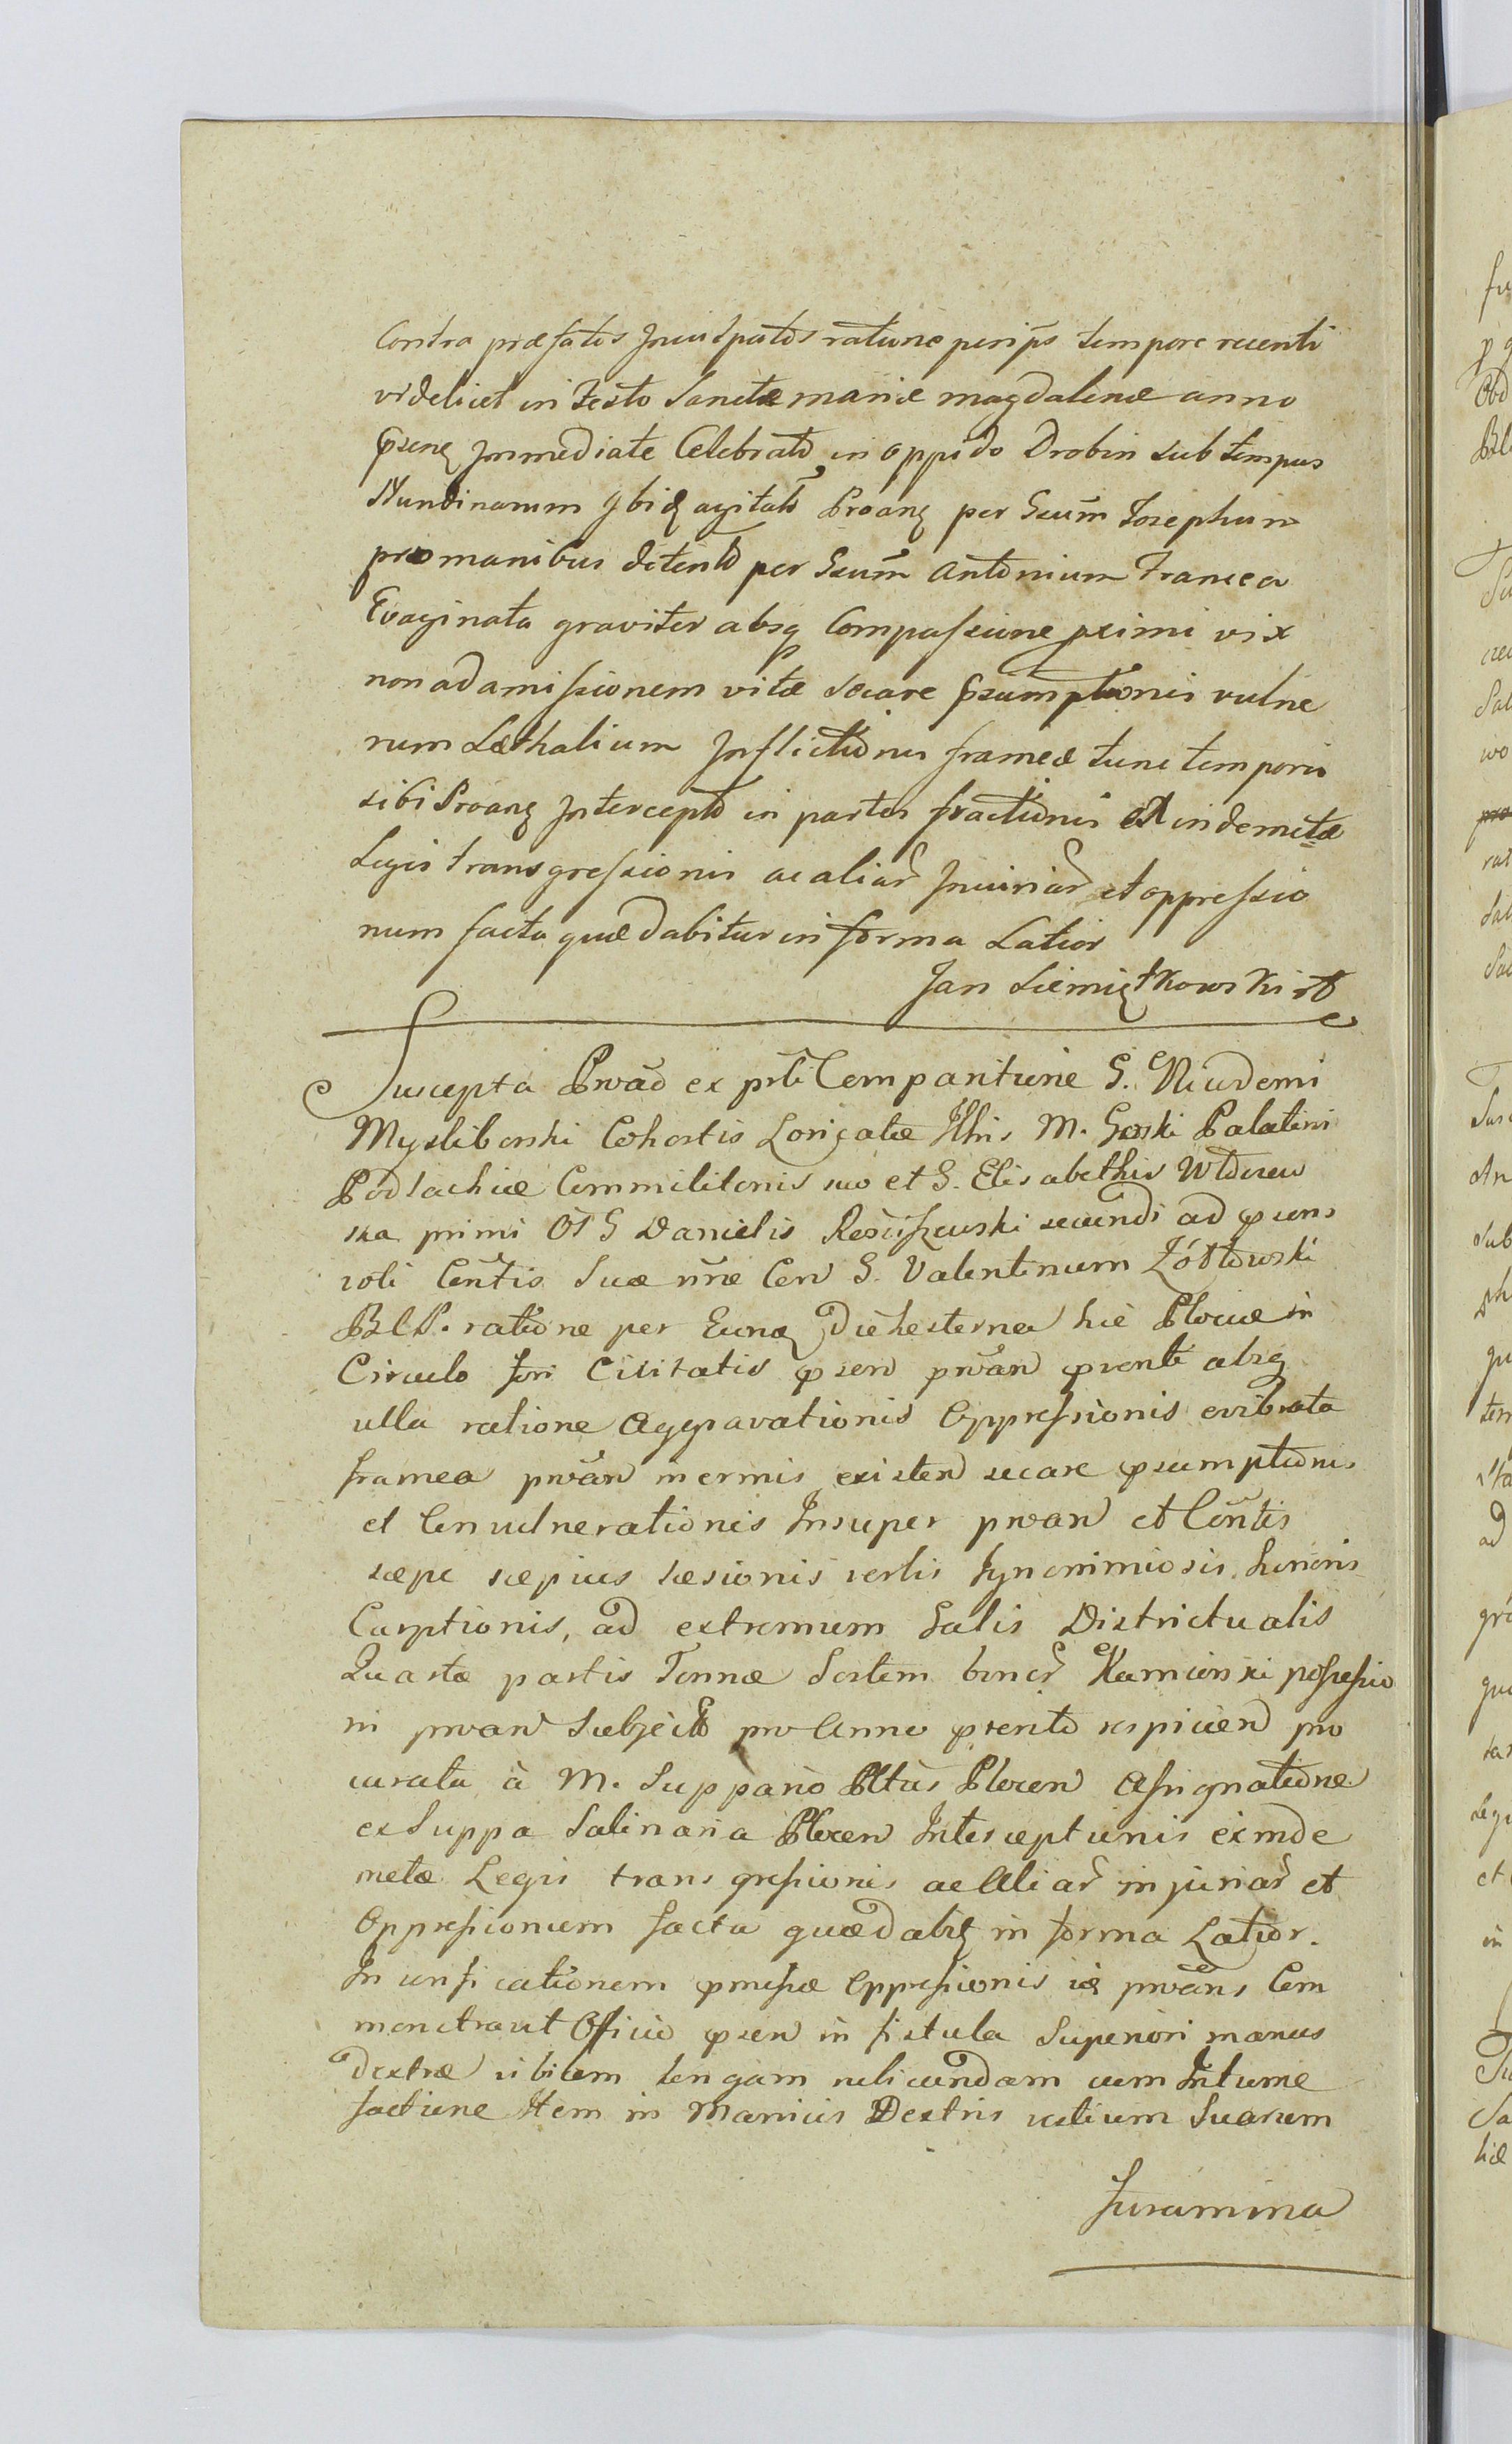 Contra præfatos Inculpatos ratione per ips tempore recenti
videlicet in Festo Sanctæ mariæ magdalenæ anno
Immediate Celebrato in oppido Drobin sub tempus
Nundinarum Ibiq agitato Proanq per Gsum Josephum
præ manibus detento per Gsum Antonium Framea
Evaginata graviter absq Compassione primi vix
non ad amissionem vitæ secare psumptionis vulne
rum Læthalium Inflictionis frameæ tunc temporis
sibi Proanq Intercepto in partes fractionis et inde metæ
Legis transgressionis ac aliar Iniuriar et oppressio
num facta quæ dabitur in forma Latior
Jan Siemiątkowski
Suscepta Proað ex prli Comparitione G. Nicodemi
Mysliborski Cohortis Loricatæ Illris M. Gorski Palatini
Podlachiæ Commilitonis suo et G. Elisabethis
ska primi Ot G Danielis secundi ad psens
voti Contis Suæ nnæ Con G. Valentinum Żółtowski
B.C.P. ratione per Eunq Die hesterna hic Plociæ in
Circulo fori Civitatis psen proan psenti absq
ulla ratione Aggravationis Oppressionis evibrata
framea proan inermis existen secare psumptionis
et Convulnerationis Insuper proan et Contis
sæpe sæpius læsionis verbis Ignominiosis honoris
Carptionis, ad extremum Salis Districtualis
Quartæ partis Tonnæ Sortem bonor Kamienski possessio
ni proan Subjecto pro Anno psenti respicien pro
curata à M. Suppario Pltus Plocen Assignatione
ex Suppa Salinaria Plocen Interceptionis exinde
metæ Legis transgressionis ac Aliar injuriar et
Oppressionum facta quæ dabitq in forma Latior.
In verificationem pmissæ Oppressionis ide proans Com
monstravit Officio psen in fistula Superiori manus
Dextræ sibicem longam rubicundam cum Intume
factione Item in Manicis Dextris vestium Suarum
Juramina